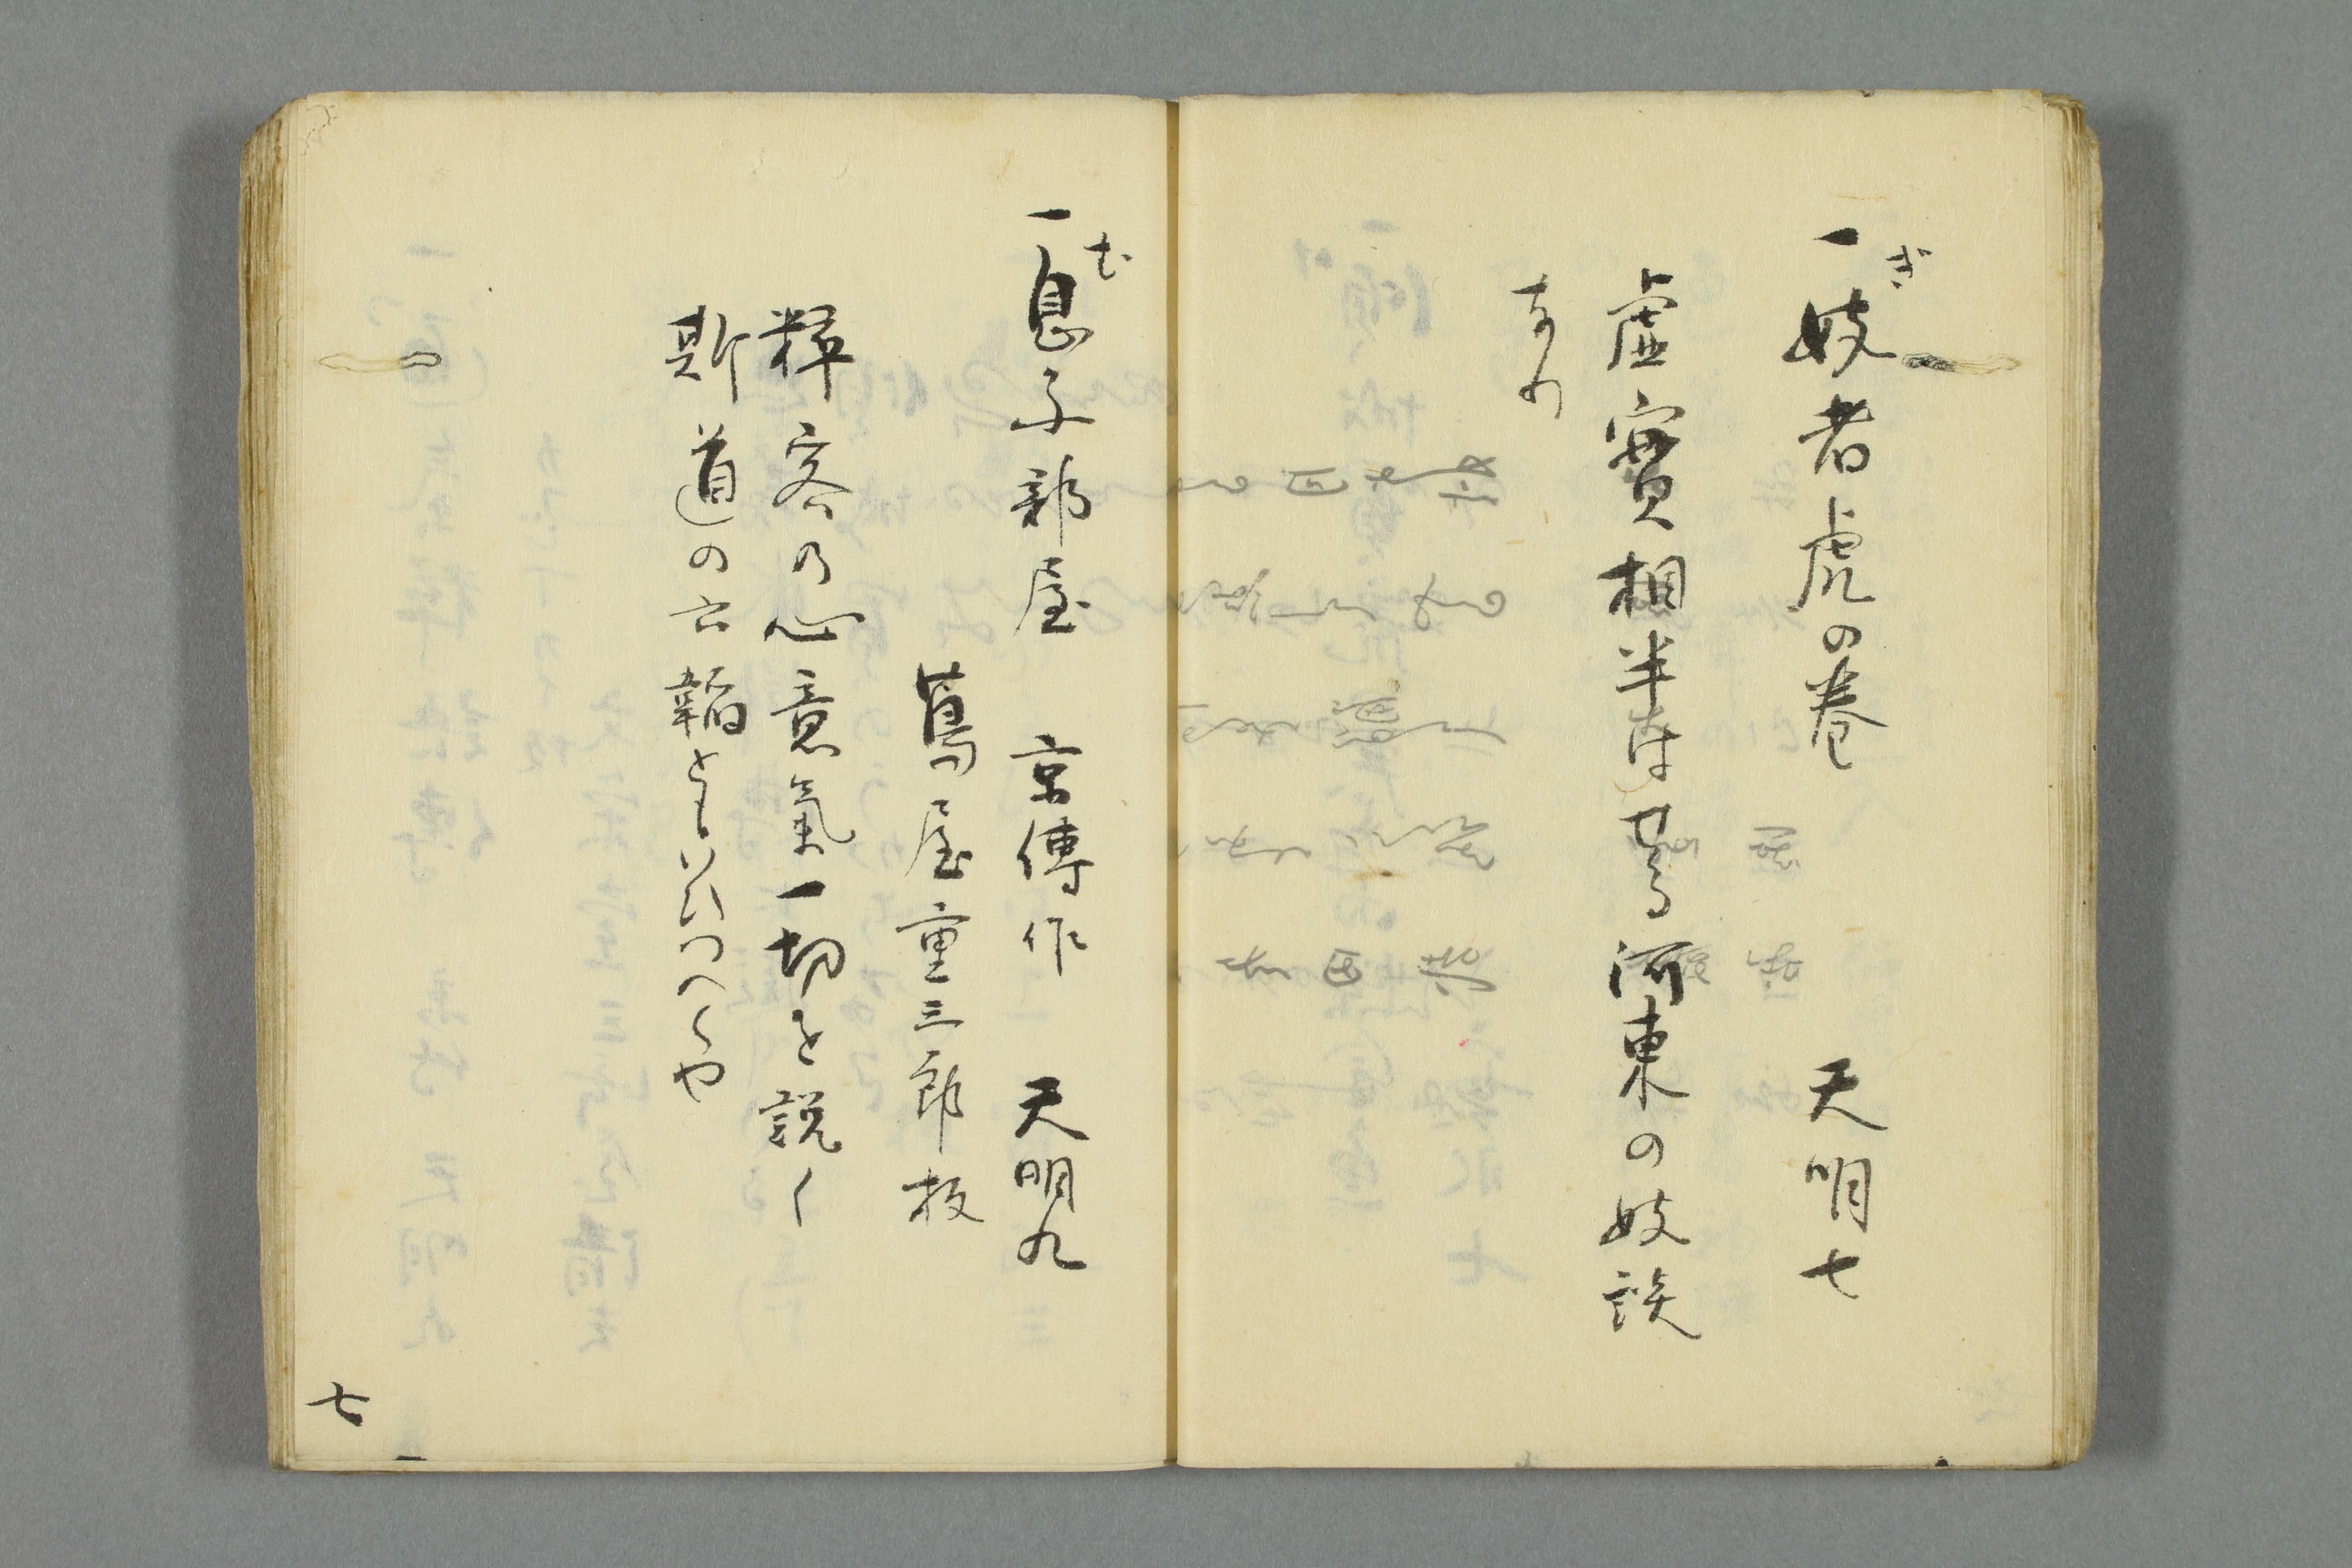 ぎ
一妓者虎の巻 天明七
虚實相半せる河東の妓談
なり
む
一息子部屋 京傳作 天明九
蔦屋重三郎板
粹客の心意氣一切を説く
斯道の六韜ともいひつへくや
七